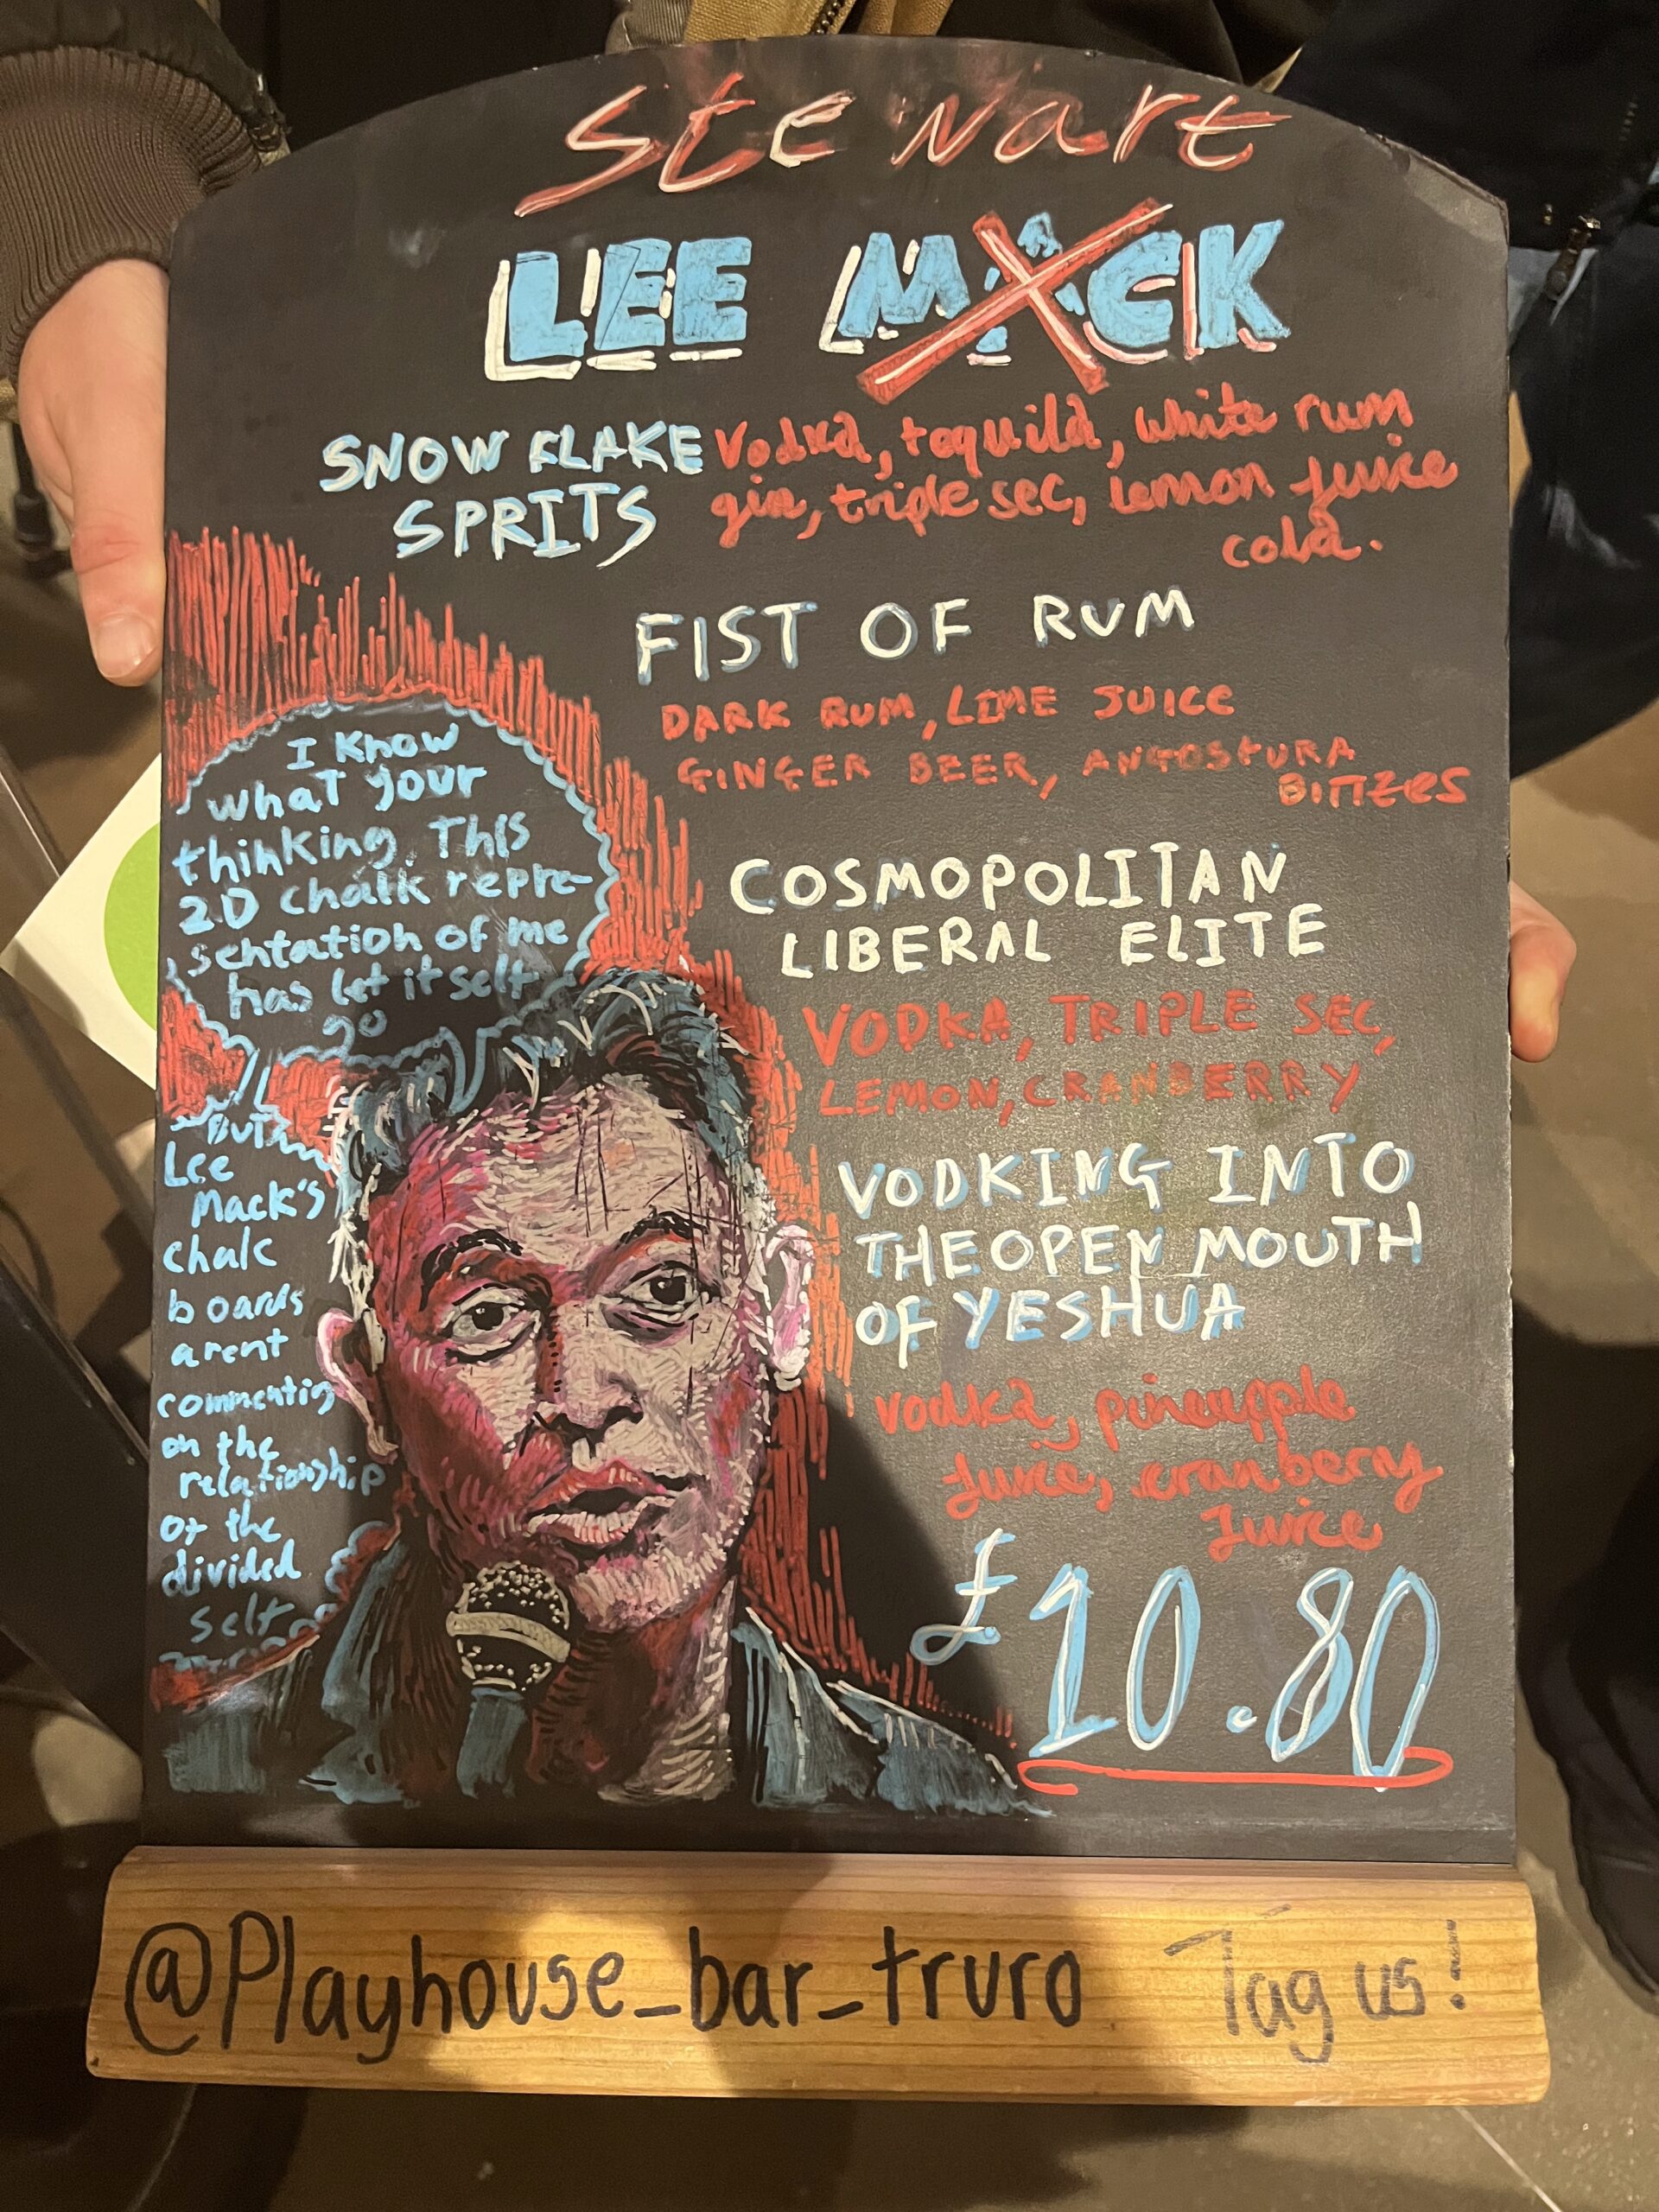 Stewart
LEE MACK
SNOWFLAKE
SPRITS
Vodka, tequila, white rum
gin, triple sec, lemon juice
cola.
FIST OF RUM
DARK RUM, LIME JUICE
GINGER BEER, ANGOSTURA
BITTERS
I know
what your
thinking. This
2D chalk repre-
sentation of me
has let itself
go
BUT
Lee
Mack's
chalc
boards
arent
commentig
on the
relationship
of the
divided
self
COSMOPOLITAN
LIBERAL ELITE
VODKA, TRIPLE SEC,
LEMON, CRANBERRY
VODKING INTO
THE OPEN MOUTH
OF YESHUA
vodka, pineapple
juice, cranberry
Juice
£10.80
@Playhouse_bar_truro Tag us!